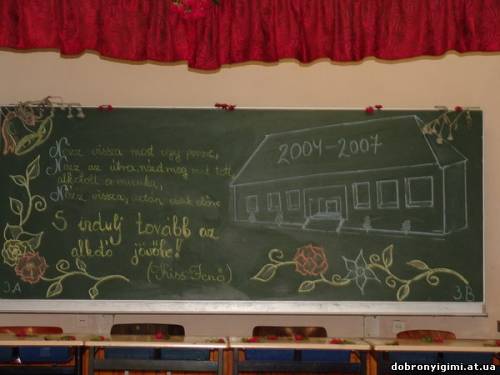 Nézz vissza most egy percre,
Nézz az útra, nézd meg mit tett
alkotott a munka,
Nézz vissza, aztán csak előre
S indulj tovább az
alkotó jövőbe!
(Kiss Jenő)
2004-2007
3.A
3.B
dobronyigimi.at.ua